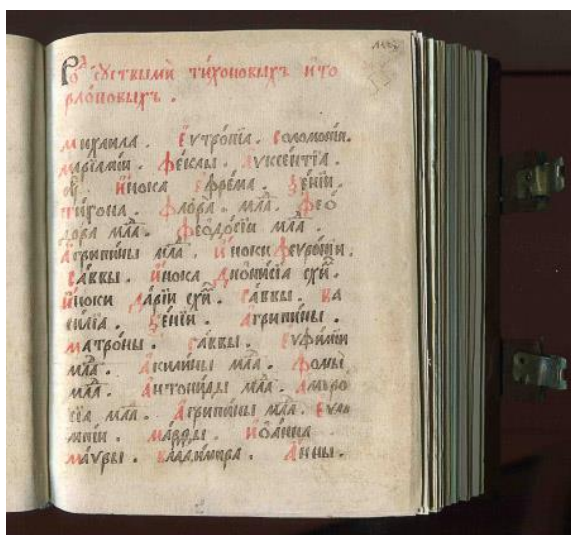 Ро҆ᲁ сꙋствыми ти́хоновыхъ и҆то
рло́повыхъ .
михаила . Є҆ѵтро́пїа . Соломоні́и .
марїа́мїи . ѳе́клы . а҆ѵксе́нтїа .
и҆́нока є҆фре́ма . ѯе́нїи .
ти́хона . фло́ра . мла̑ . ѳео
дора мла̑ . ѳеодо́сїи мла̑ .
а҆грипи́ны мла̑ . и҆́ноки феѵро́нїи .
са́ввы . и҆́нока дионисїа схи̑ .
и҆́ноки да́рїи схи̑ . са́ввы . ва
си́лїа . ѯе́нїи . а҆грипи́ны .
матро́ны . са́ввы . є҆ѵфи́мїи
мла̑ . а҆кили́ны мла̑ . фомы̀
мла̑ . а҆нтони́ды мла̑ . а҆мвро
сїа мла̑ . а҆грипи́ны мла̑ . є҆ѵла
мпі́и . ма́рѳы . і҆ѡа́нна
ма́ѵры . влади́мира . а҆́нны .